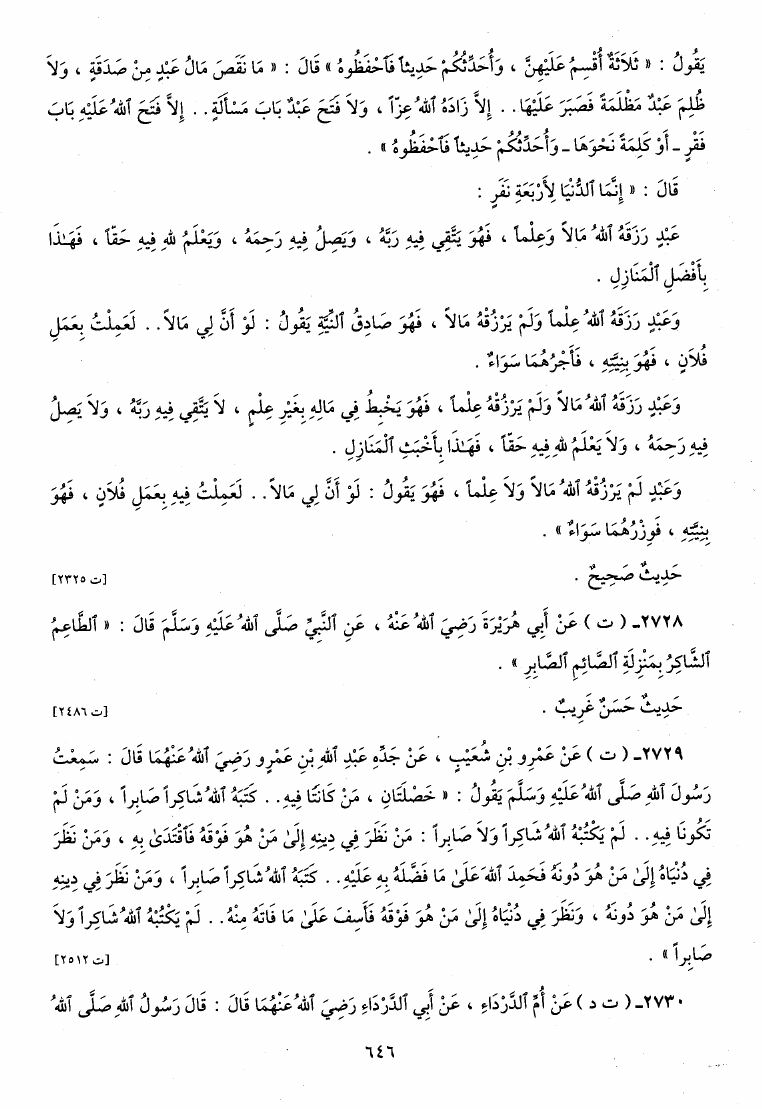 يَقُولُ : « ثَلاَثَةٌ أُقْسِمُ عَلَيْهِنَّ ، وَأُحَدِّثُكُمْ حَدِيثاً فَٱحْفَظُوهُ » قَالَ : « مَا نَقَصَ مَالُ عَبْدٍ مِنْ صَدَقَةٍ ، وَلاَ
ظُلِمَ عَبْدٌ مَظْلَمَةً فَصَبَرَ عَلَيْهَا . . إِلاَّ زَادَهُ ٱللهُ عِزّاً ، وَلاَ فَتَحَ عَبْدٌ بَابَ مَسْأَلَةٍ . . إِلاَّ فَتَحَ ٱللهُ عَلَيْهِ بَابَ
فَقْرٍ ـ أَوْ كَلِمَةً نَحْوَهَا ـ وَأُحَدِّثُكُمْ حَدِيثاً فَٱحْفَظُوهُ » .
قَالَ : « إِنَّمَا ٱلدُّنْيَا لِأَرْبَعَةِ نَفَرٍ :
عَبْدٍ رَزَقَهُ ٱللهُ مَالاً وَعِلْماً ، فَهُوَ يَتَّقِي فِيهِ رَبَّهُ ، وَيَصِلُ فِيهِ رَحِمَهُ ، وَيَعْلَمُ للهِ فِيهِ حَقّاً ، فَهَـٰذَا
بِأَفْضَلِ ٱلْمَنَازِلِ .
وَعَبْدٍ رَزَقَهُ ٱللهُ عِلْماً وَلَمْ يَرْزُقْهُ مَالاً ، فَهُوَ صَادِقُ ٱلنِّيَّةِ يَقُولُ : لَوْ أَنَّ لِي مَالاً . . لَعَمِلْتُ بِعَمَلِ
فُلاَنٍ ، فَهُوَ بِنِيَّتِهِ ، فَأَجْرُهُمَا سَوَاءٌ .
وَعَبْدٍ رَزَقَهُ ٱللهُ مَالاً وَلَمْ يَرْزُقْهُ عِلْماً ، فَهُوَ يَخْبِطُ فِي مَالِهِ بِغَيْرِ عِلْمٍ ، لاَ يَتَّقِي فِيهِ رَبَّهُ ، وَلاَ يَصِلُ
فِيهِ رَحِمَهُ ، وَلاَ يَعْلَمُ للهِ فِيهِ حَقّاً ، فَهَـٰذَا بِأَخْبَثِ ٱلْمَنَازِلِ .
وَعَبْدٍ لَمْ يَرْزُقْهُ ٱللهُ مَالاً وَلاَ عِلْماً ، فَهُوَ يَقُولُ : لَوْ أَنَّ لِي مَالاً . . لَعَمِلْتُ فِيهِ بِعَمَلِ فُلاَنٍ ، فَهُوَ
بِنِيَّتِهِ ، فَوِزْرُهُمَا سَوَاءٌ » .
حَدِيثٌ صَحِيحٌ . [ت ٢٣٢٥]
٢٧٢٨ـ ( ت ) عَنْ أَبِي هُرَيْرَةَ رَضِيَ ٱللهُ عَنْهُ ، عَنِ ٱلنَّبِيِّ صَلَّى ٱللهُ عَلَيْهِ وَسَلَّمَ قَالَ : « ٱلطَّاعِمُ
ٱلشَّاكِرُ بِمَنْزِلَةِ ٱلصَّائِمِ ٱلصَّابِرِ » .
حَدِيثٌ حَسَنٌ غَرِيبٌ . [ت ٢٤٨٦]
٢٧٢٩ـ ( ت ) عَنْ عَمْرِو بْنِ شُعَيْبٍ ، عَنْ جَدِّهِ عَبْدِ ٱللهِ بْنِ عَمْرٍو رَضِيَ ٱللهُ عَنْهُمَا قَالَ : سَمِعْتُ
رَسُولَ ٱللهِ صَلَّى ٱللهُ عَلَيْهِ وَسَلَّمَ يَقُولُ : « خَصْلَتَانِ ، مَنْ كَانَتَا فِيهِ . . كَتَبَهُ ٱللهُ شَاكِراً صَابِراً ، وَمَنْ لَمْ
تَكُونَا فِيهِ . . لَمْ يَكْتُبْهُ ٱللهُ شَاكِراً وَلاَ صَابِراً : مَنْ نَظَرَ فِي دِينِهِ إِلَىٰ مَنْ هُوَ فَوْقَهُ فَٱقْتَدَىٰ بِهِ ، وَمَنْ نَظَرَ
فِي دُنْيَاهُ إِلَىٰ مَنْ هُوَ دُونَهُ فَحَمِدَ ٱللهَ عَلَىٰ مَا فَضَّلَهُ بِهِ عَلَيْهِ . . كَتَبَهُ ٱللهُ شَاكِراً صَابِراً ، وَمَنْ نَظَرَ فِي دِينِهِ
إِلَىٰ مَنْ هُوَ دُونَهُ ، وَنَظَرَ فِي دُنْيَاهُ إِلَىٰ مَنْ هُوَ فَوْقَهُ فَأَسِفَ عَلَىٰ مَا فَاتَهُ مِنْهُ . . لَمْ يَكْتُبْهُ ٱللهُ شَاكِراً وَلاَ
صَابِراً » . [ت ٢٥١٢]
٢٧٣٠ـ ( ت د ) عَنْ أُمِّ ٱلدَّرْدَاءِ ، عَنْ أَبِي ٱلدَّرْدَاءِ رَضِيَ ٱللهُ عَنْهُمَا قَالَ : قَالَ رَسُولُ ٱللهِ صَلَّى ٱللهُ
٦٤٦